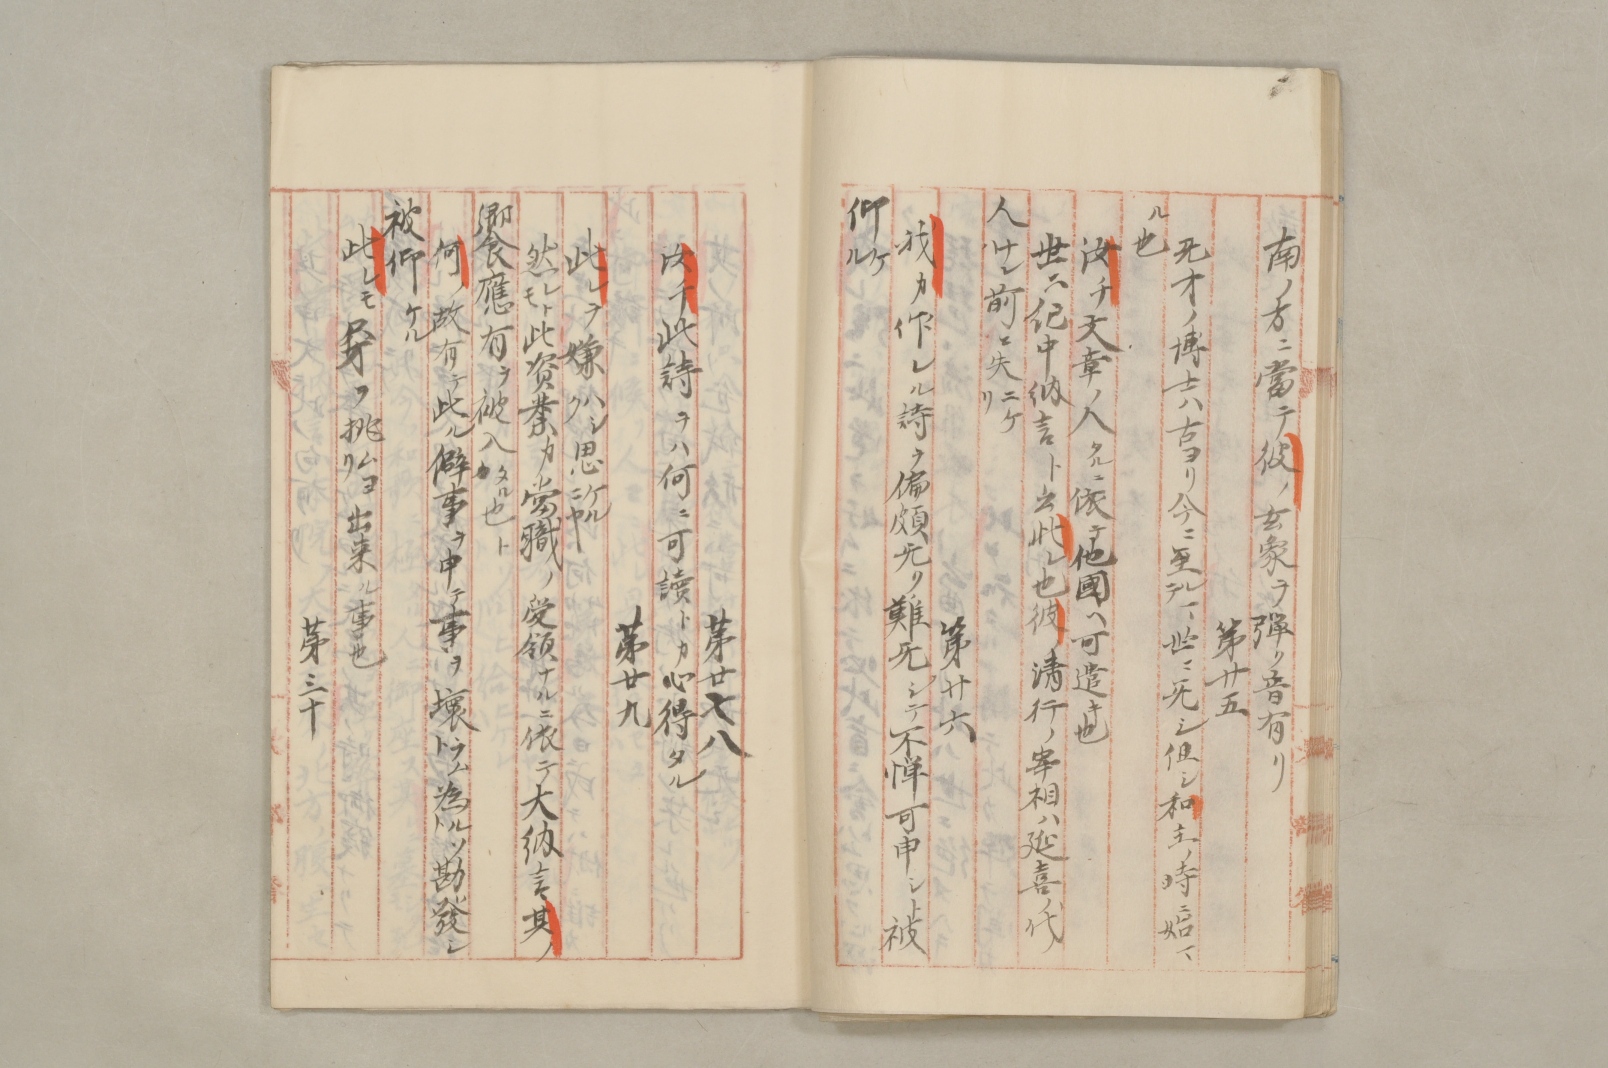 南ノ方ニ當テ彼ノ玄象ヲ弾ク音有リ
第廿五
无才ノ博士ハ古ヨリ今ニ至ルマテ世ニ无シ但シ和主ノ時ニ始マ
ル也
汝チ文章ノ人タルニ依テ他國ヘ可遣キ也
世ニ紀中納言ト云此レ也彼ノ清行ノ宰相ハ延喜ノ代
人ケレ前ニ失ニケリ
第廿六
我カ作レル詩ヲ偏頗无ク難无シテ不憚可申シト被
仰ケル
第廿八
汝チ此詩ヲハ何ニ可讀トカ心得タル
第廿九
此レヲ嫌ハシク思ケルニヤ
然レトモ此資業カ當職ノ受領ナルニ依テ大納言其ノ
饗應有ヲ被入タル也ト
何ノ故有テ此ル僻事ヲ申テ事ヲ壊ラムト為ルソト勘發シ
被仰ケル
此レモ身ノ挑ムヨリ出来ル事也
第三十